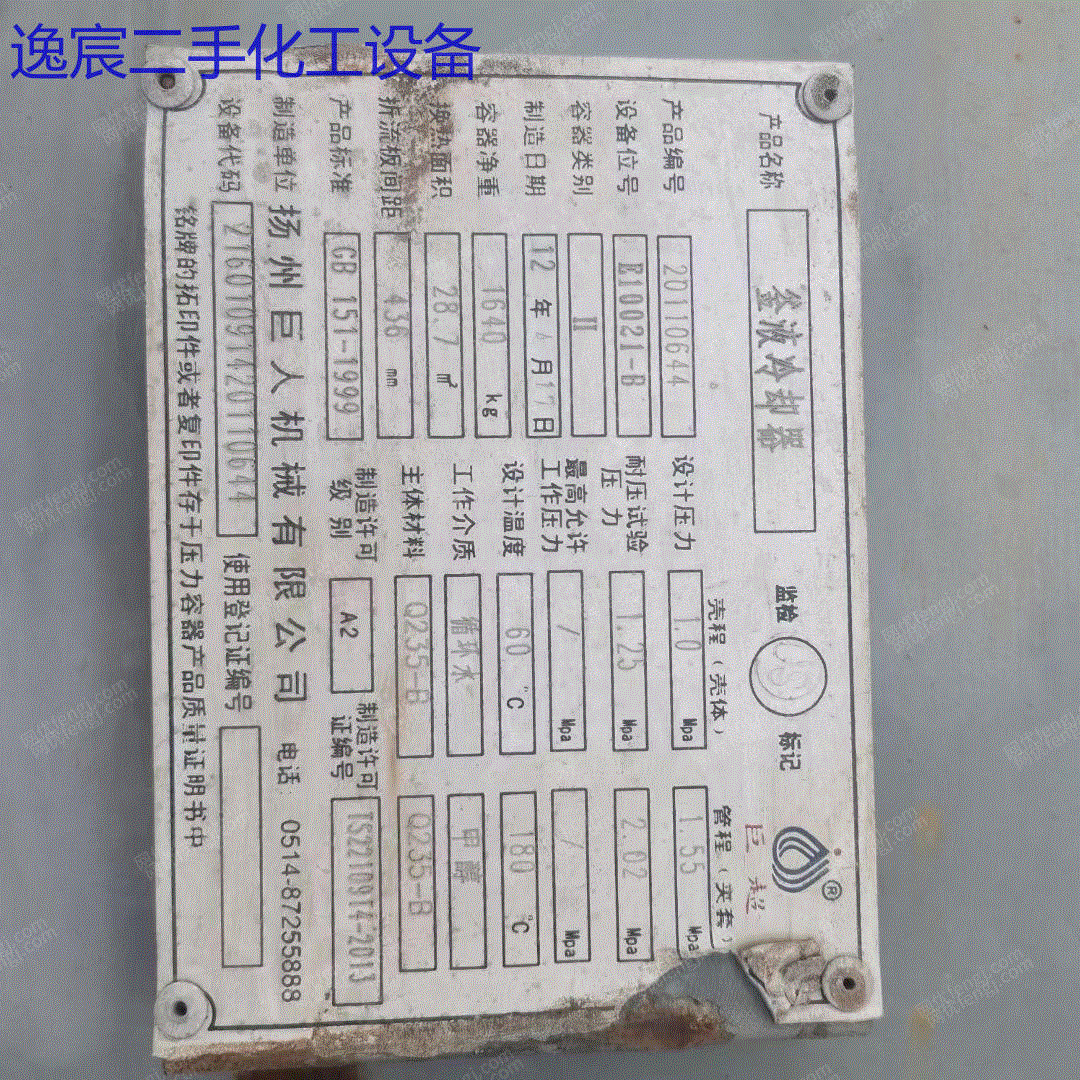 逸宸二手化工设备
产品名称 釜液冷却器 监检 标记 巨 ®
壳程（壳体） 管程（夹套）
产品编号 20110644 设计压力 1.0 Mpa 1.55 Mpa
设备位号 E10021-B 耐压试验压力 1.25 Mpa 2.02 Mpa
容器类别 II 最高允许工作压力 / Mpa / Mpa
制造日期 12 年 月 17 日 设计温度 60 ℃ 180 ℃
容器净重 1640 kg 工作介质 循环水 甲醇
换热面积 28.7 ㎡ 主体材料 Q235-B Q235-B
折流板间距 436 mm 制造许可级别 A2 制造许可证编号 TS2210914-2013
产品标准 GB 151-1999
制造单位 扬州巨人机械有限公司 电话: 0514-87255888
设备代码 21601091420110644 使用登记证编号
铭牌的拓印件或者复印件存于压力容器产品质量证明书中